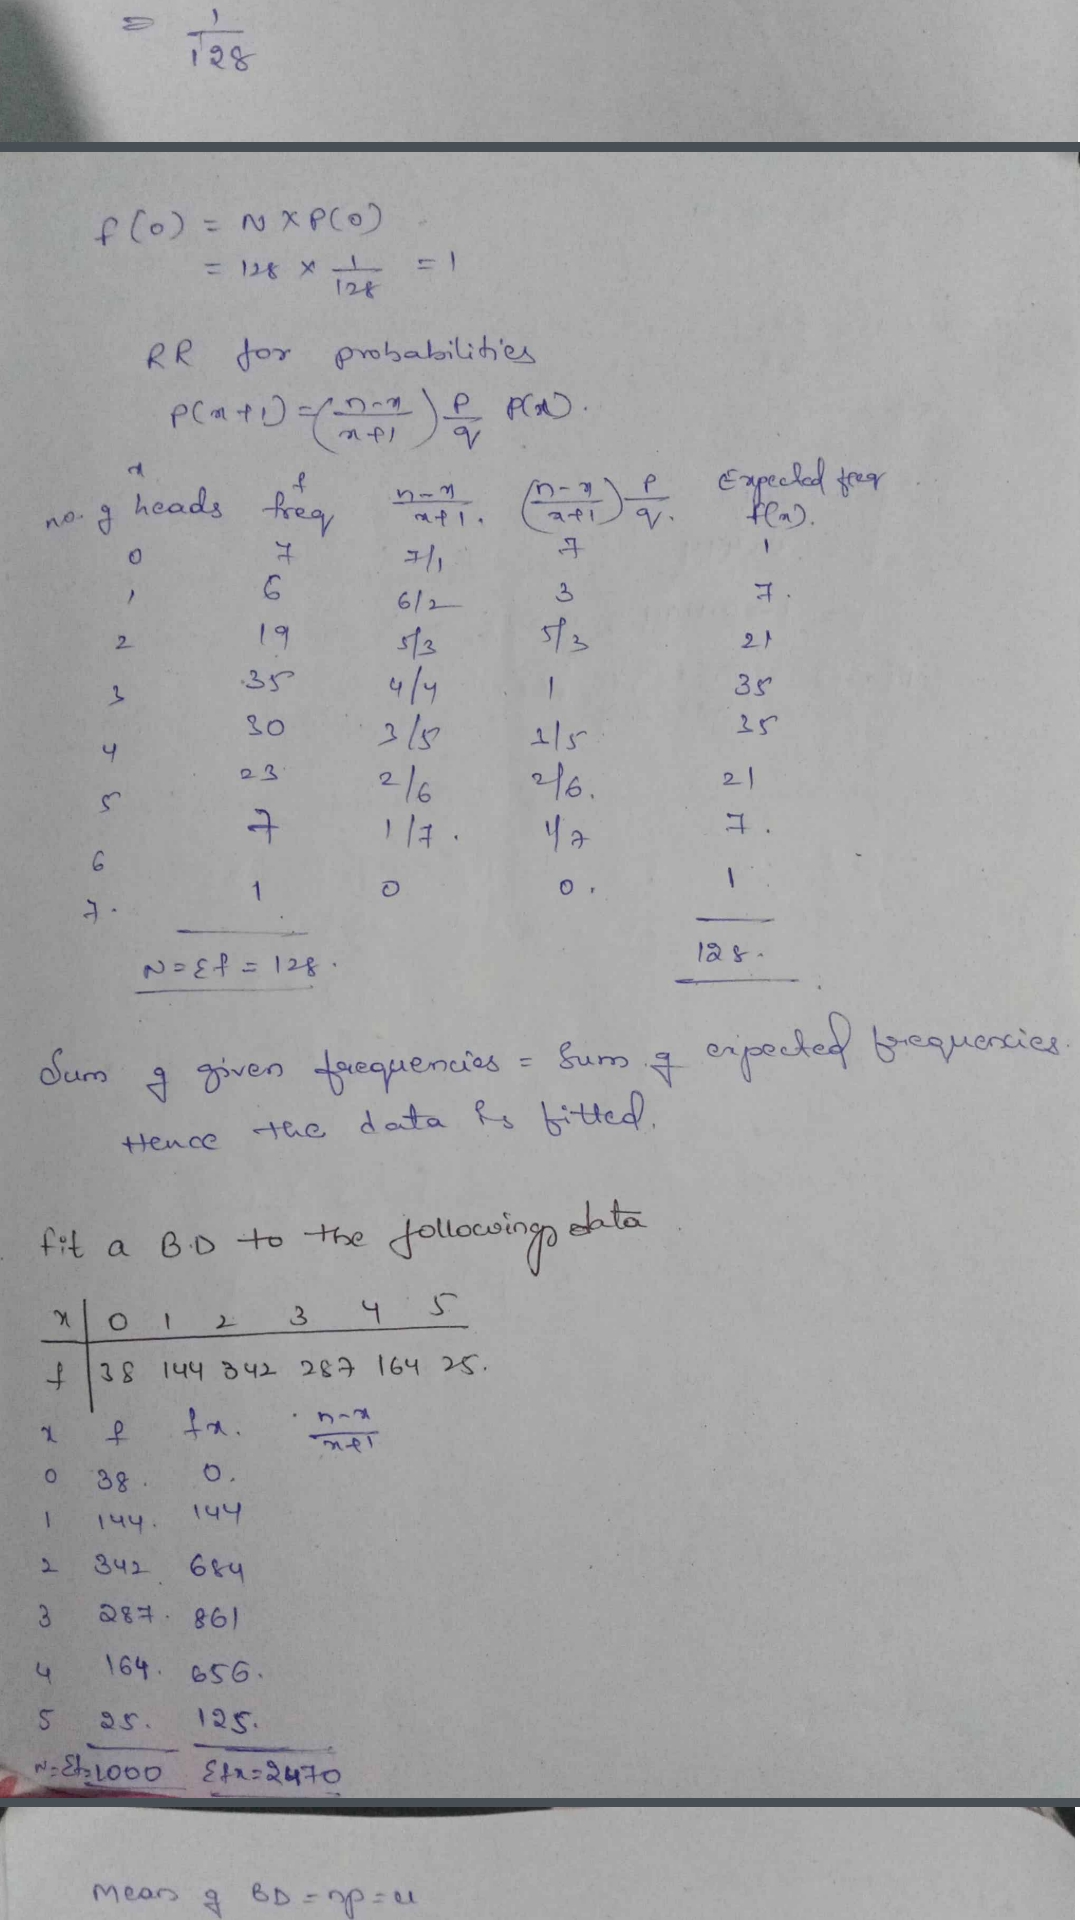 = 1/128
f(0) = N × P(0)
= 128 × 1/128 = 1
RR for probabilities
P(x+1) = (n-x/x+1) p/q P(x).
x f Expected freq
no. of heads freq n-x/x+1. (n-x/x+1) p/q. f(x).
0 7 7/1 7 1
1 6 6/2 3 7.
2 19 5/3 5/3 21
3 35 4/4 1 35
4 30 3/5 3/5 35
5 23 2/6 2/6. 21
6 7 1/7. 1/7 7.
7. 1 0 0. 1
N=Σf = 128. 128.
Sum of given frequencies = Sum of expected frequencies.
Hence the data is fitted.
Fit a B.D to the following data
x 0 1 2 3 4 5
f 38 144 342 287 164 25.
x f fx. n-x/x+1
0 38. 0.
1 144. 144
2 342 684
3 287. 861
4 164. 656.
5 25. 125.
N=Σf=1000 Σfx=2470
Mean of BD = np = μ